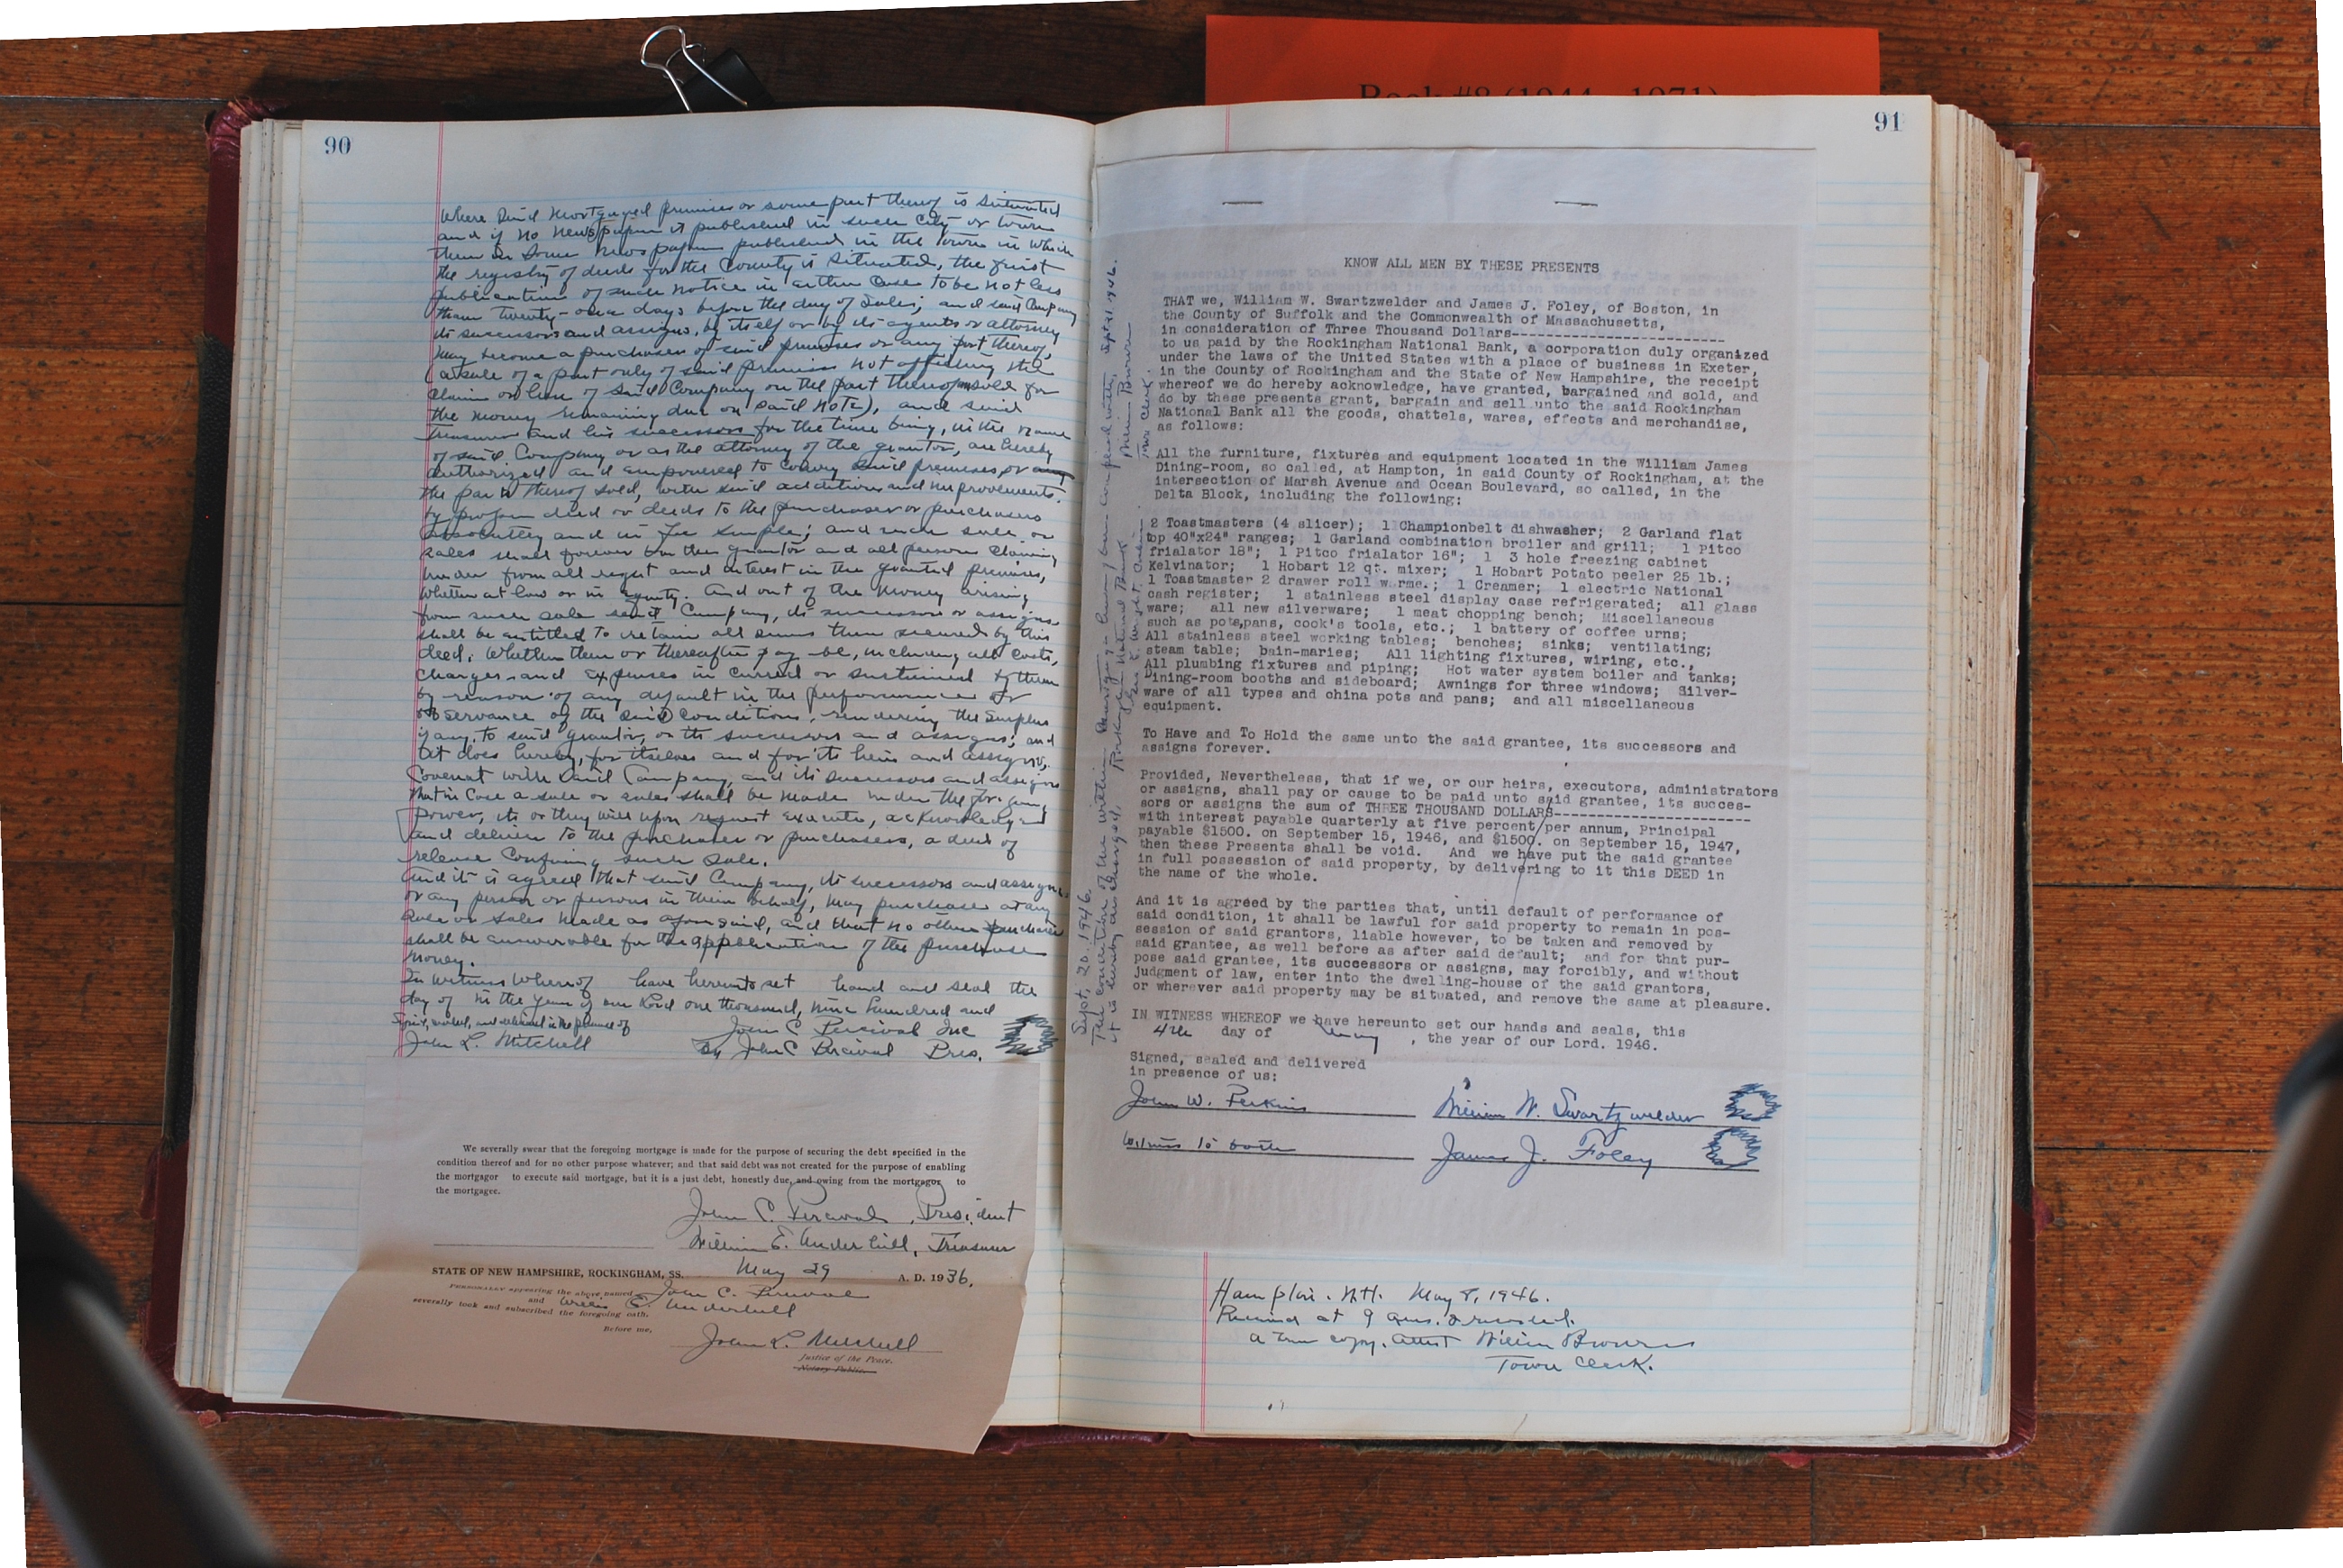 90
Where said mortgaged premises or some part thereof is situated
and if no newspaper is published in such city or town
then in some newspaper published in the town in which
the registry of deeds for the County is situated, the first
publication of such notice in either case to be not less
than twenty-one days before the day of sale; and said Company
its successors and assigns, by itself or by its agents or attorney
may become a purchaser of said premises or any part thereof,
(a sale of a part only of said premises not affecting the
claim or lien of said Company on the part thereof unsold for
the money remaining due on said note), and said
treasurer and his successors for the time being, in the name
of said Company or as the attorney of the grantor, are hereby
authorized and empowered to convey said premises, or any
the parts thereof sold, with said additions and improvements,
by proper deed or deeds to the purchaser or purchasers
absolutely and in fee simple; and such sale or
sales shall forever bar the grantor and all persons claiming
under from all right and interest in the granted premises,
whether at law or in equity. And out of the money arising
from such sale said Company, its successors or assigns
shall be entitled to retain all sums then secured by this
deed, whether then or thereafter pay-ble, including all costs,
charges and expenses incurred or sustained by them
by reason of any default in the performance or
observance of the said conditions, rendering the surplus
if any, to said grantor, or its successors and assigns; and
it does hereby, for itselves and for its heirs and assigns,
Covenant with said Company, and its successors and assigns
that in case a sale or sales shall be made under the foregoing
power, it or they will upon request execute, acknowledge
and deliver to the purchaser or purchasers, a deed of
release confirming such sale.
And it is agreed that said Company, its successors and assigns
or any person or persons in their behalf, may purchase at any
sale or sales made as aforesaid, and that no other purchaser
shall be answerable for the application of the purchase
money.
In Witness Whereof have hereunto set hand and seal the
day of in the year of our Lord one thousand, nine hundred and
Signed, sealed, and delivered in the presence of
John C Percival Inc
John L. Mitchell By John C Percival Pres.
We severally swear that the foregoing mortgage is made for the purpose of securing the debt specified in the
condition thereof and for no other purpose whatever; and that said debt was not created for the purpose of enabling
the mortgagor to execute said mortgage, but it is a just debt, honestly due, and owing from the mortgagor to
the mortgagee.
John C. Percival, President
William E. Underhill, Treasurer
STATE OF NEW HAMPSHIRE, ROCKINGHAM, SS. May 29 A. D. 1936.
PERSONALLY appearing the above named John C. Percival
and William E. Underhill
severally took and subscribed the foregoing oath.
Before me,
John L. Mitchell
Justice of the Peace.
Notary Public.
Book #8 (1944 - 1971)
91
KNOW ALL MEN BY THESE PRESENTS
THAT we, William W. Swartzwelder and James J. Foley, of Boston, in
the County of Suffolk and the Commonwealth of Massachusetts,
in consideration of Three Thousand Dollars-------------------------
to us paid by the Rockingham National Bank, a corporation duly organized
under the laws of the United States with a place of business in Exeter,
in the County of Rockingham and the State of New Hampshire, the receipt
whereof we do hereby acknowledge, have granted, bargained and sold, and
do by these presents grant, bargain and sell unto the said Rockingham
National Bank all the goods, chattels, wares, effects and merchandise,
as follows:
All the furniture, fixtures and equipment located in the William James
Dining-room, so called, at Hampton, in said County of Rockingham, at the
intersection of Marsh Avenue and Ocean Boulevard, so called, in the
Delta Block, including the following:
2 Toastmasters (4 slicer); 1 Championbelt dishwasher; 2 Garland flat
top 40"x24" ranges; 1 Garland combination broiler and grill; 1 Pitco
frialator 18"; 1 Pitco frialator 16"; 1 3 hole freezing cabinet
Kelvinator; 1 Hobart 12 qt. mixer; 1 Hobart Potato peeler 25 lb.;
1 Toastmaster 2 drawer roll warme.; 1 Creamer; 1 electric National
cash register; 1 stainless steel display case refrigerated; all glass
ware; all new silverware; 1 meat chopping bench; Miscellaneous
such as pots,pans, cook's tools, etc.; 1 battery of coffee urns;
All stainless steel working tables; benches; sinks; ventilating;
steam table; bain-maries; All lighting fixtures, wiring, etc.,
All plumbing fixtures and piping; Hot water system boiler and tanks;
Dining-room booths and sideboard; Awnings for three windows; Silver-
ware of all types and china pots and pans; and all miscellaneous
equipment.
To Have and To Hold the same unto the said grantee, its successors and
assigns forever.
Provided, Nevertheless, that if we, or our heirs, executors, administrators
or assigns, shall pay or cause to be paid unto said grantee, its succes-
sors or assigns the sum of THREE THOUSAND DOLLARS-----------------------
with interest payable quarterly at five percent per annum, Principal
payable $1500. on September 15, 1946, and $1500. on September 15, 1947,
then these Presents shall be void. And we have put the said grantee
in full possession of said property, by delivering to it this DEED in
the name of the whole.
And it is agreed by the parties that, until default of performance of
said condition, it shall be lawful for said property to remain in pos-
session of said grantors, liable however, to be taken and removed by
said grantee, as well before as after said default; and for that pur-
pose said grantee, its successors or assigns, may forcibly, and without
judgment of law, enter into the dwelling-house of the said grantors,
or wherever said property may be situated, and remove the same at pleasure.
IN WITNESS WHEREOF we have hereunto set our hands and seals, this
4th day of May , the year of our Lord. 1946.
Signed, sealed and delivered
in presence of us:
John W. Perkins William W. Swartzwelder
Witness to both James J. Foley
Sept, 20. 1946.
The condition of the within mortgage having been complied with,
it is hereby discharged, Rockingham National Bank
Sept 21. 1946.
William Brown
Town Clerk.
Hampton. N.H. May 8, 1946.
Received at 9 a.m. & recorded.
a true copy, attest William Brown
Town Clerk.